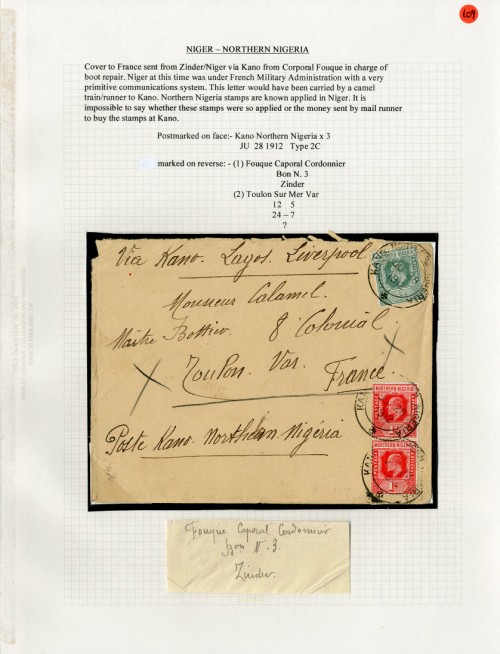 109
NIGER – NORTHERN NIGERIA
Cover to France sent from Zinder/Niger via Kano from Corporal Fouque in charge of
boot repair. Niger at this time was under French Military Administration with a very
primitive communications system. This letter would have been carried by a camel
train/runner to Kano. Northern Nigeria stamps are known applied in Niger. It is
impossible to say whether these stamps were so applied or the money sent by mail runner
to buy the stamps at Kano.
Postmarked on face:- Kano Northern Nigeria x 3
JU 28 1912 Type 2C
marked on reverse: - (1) Fouque Caporal Cordonnier
Bon N. 3
Zinder
(2) Toulon Sur Mer Var
12 5
24 – 7
?
Via Kano. Lagos. Liverpool
Monsieur Calamel.
Maitre Bottier. 8 Colonial
Toulon. Var.
France.
Poste Kano. Northern. Nigéria
NORTHERN NIGERIA
NORTHERN NIGERIA
Fouque Caporal Cordonnier
bon N. 3.
Zinder.